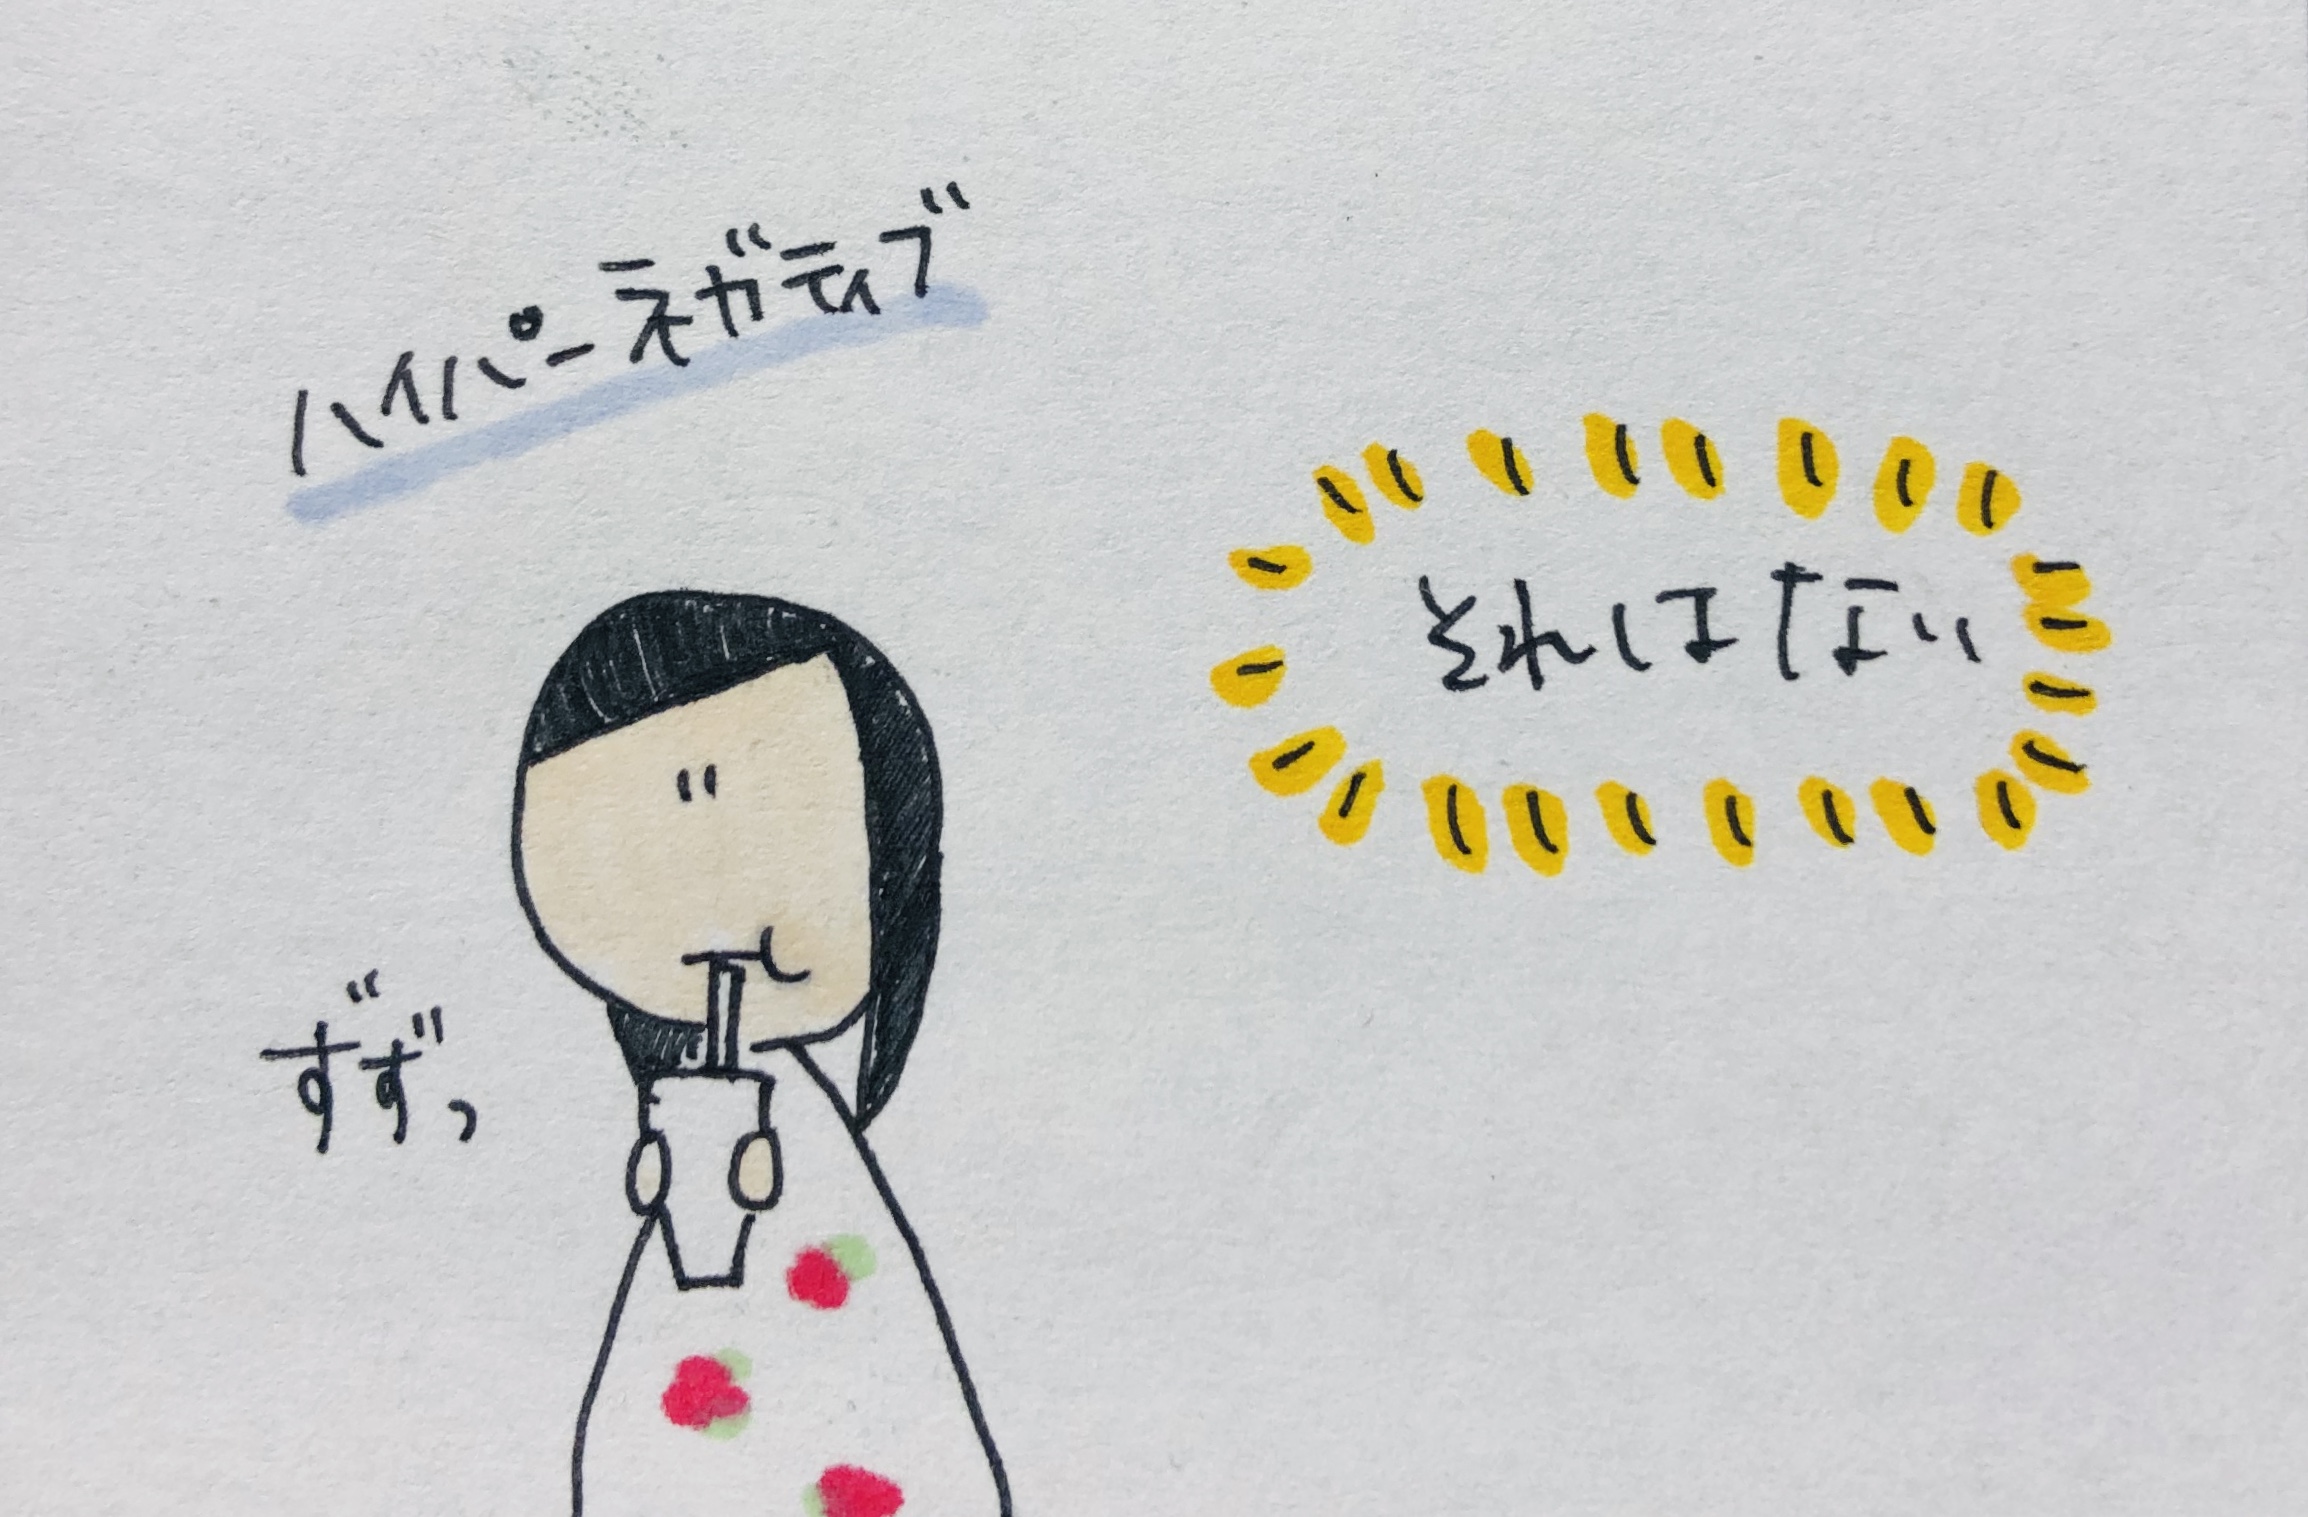 ハイパーネガティブ
それはない
ずずっ